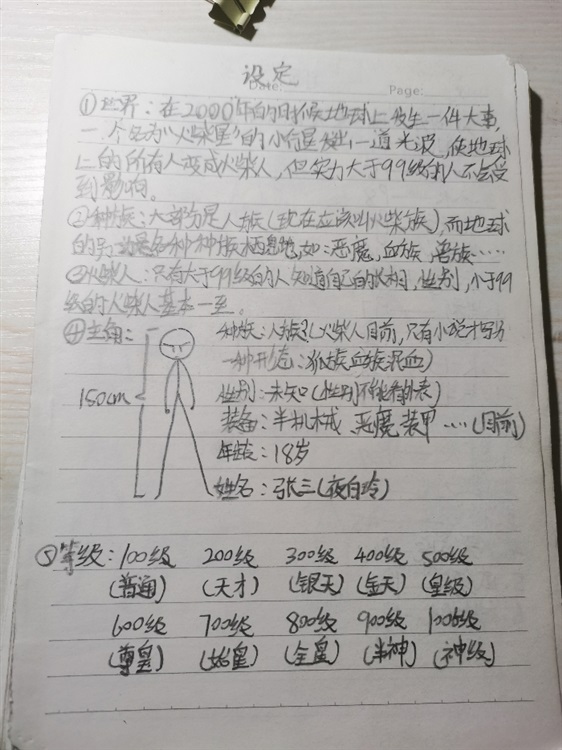 设定
Date: Page:
①世界：在2000年的时候地球上发生一件大事，
一个名为“火柴星”的小行星发出一道光波，使地球
上的所有人变成火柴人，但实力大于99级的人不会受
到影响。
②种族：大部分是人族（现在应该叫火柴族），而地球
的另一边是各种种族栖息地，如：恶魔，血族，兽族……
③火柴人：只有大于99级的人知道自己的长相，性别，小于99
级的火柴人基本一至。
④主角：
种族：人族（火柴人目前，只有小说才写另
一种形态：狐族血族混血）
150cm
性别：未知（性别不能看外表）
装备：半机械 恶魔 装甲……（目前）
年龄：18岁
姓名：张三（夜白玲）
⑤等级：100级 200级 300级 400级 500级
（普通） （天才） （银天） （金天） （皇级）
600级 700级 800级 900级 1000级
（尊皇） （始皇） （全皇） （半神） （神级）